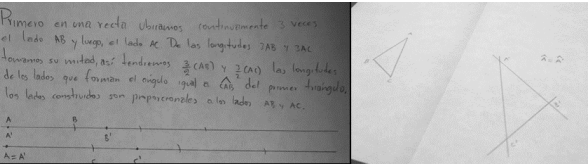 Primero en una recta ubicamos continuamente 3 veces
el lado AB y luego, el lado AC. De las longitudes 3AB y 3AC
tomamos su mitad, así tendremos 3/2 (AB) y 3/2 (AC) las longitudes
de los lados que forman el ángulo igual a CAB del primer triángulo,
los lados construidos son proporcionales a los lados AB y AC.
A B
A' B'
A=A' C C'